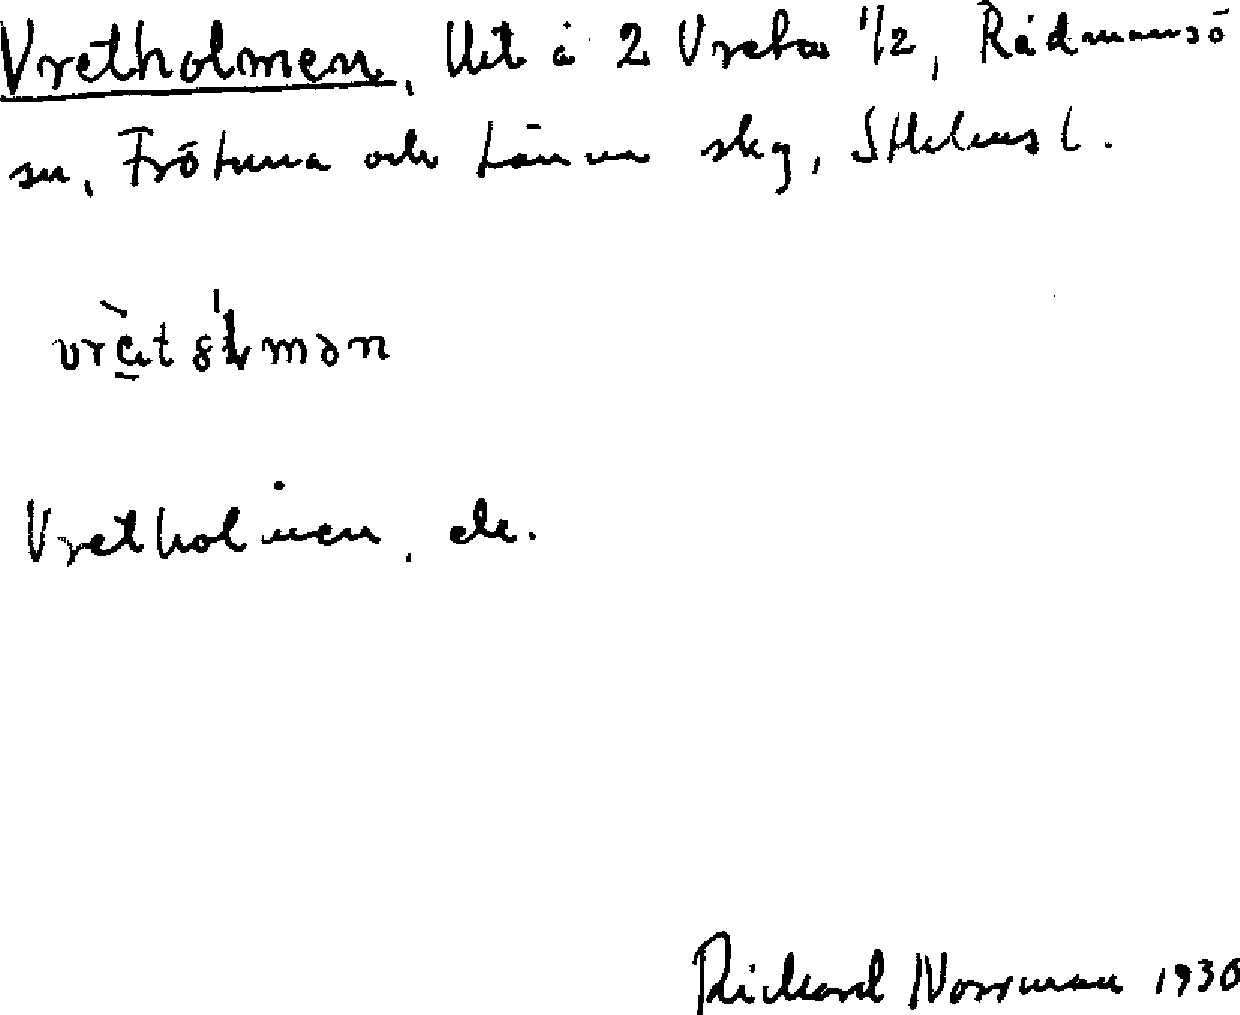 Vretholmen, Ut å 2 Vreta 1/2, Rådmansö
sn, Frötuna och Länna skg, Sthlms l.
Vretholmen, ek.
Rickard Norrman 1930